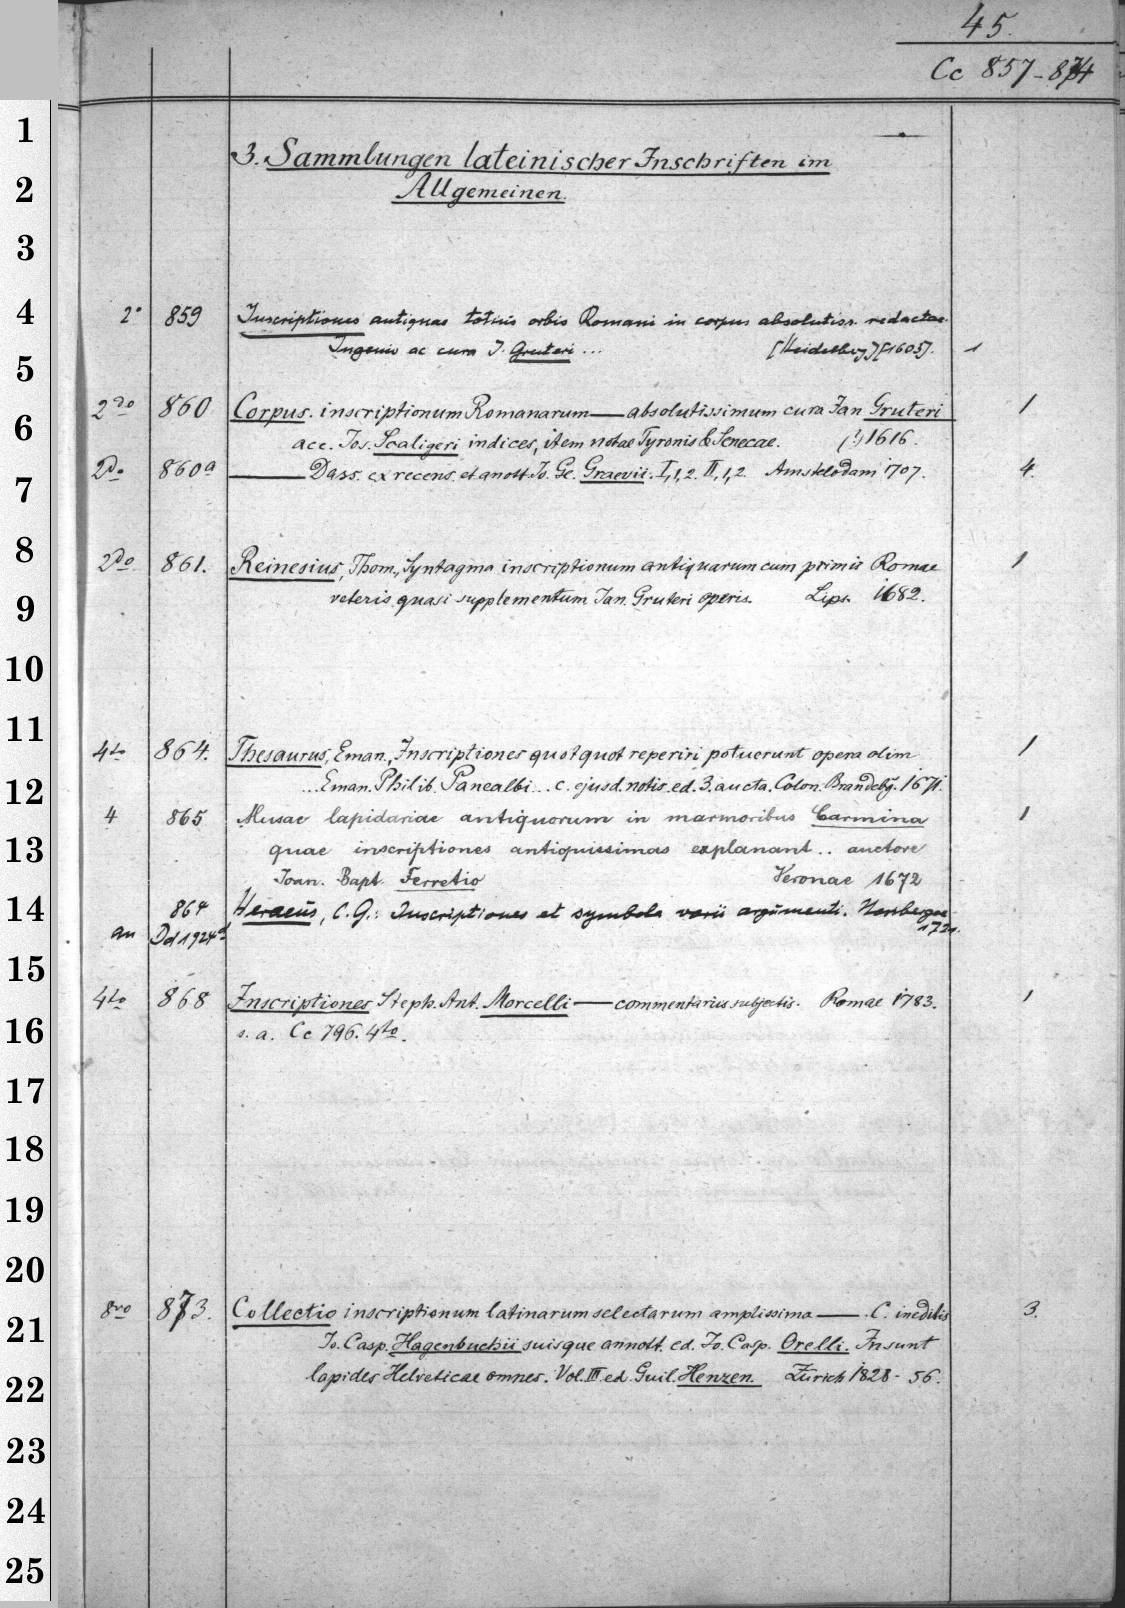 45.
Cc 857-874
3. Sammlungen lateinischer Inschriften im
Allgemeinen.
2° 859 Inscriptiones antiquae totius orbis Romani in corpus absolutiss. redactae.
Ingenio ac cura J. Gruteri ... [Heidelberg] [1605]. 1
2do 860 Corpus. inscriptionum Romanarum — absolutissimum cura Jan Gruteri 1
acc. Jos. Scaligeri indices, item notae Tyronis & Senecae. (?) 1616.
2do 860a — Dass. ex recens. et anott. Jo. Ge. Graevii. I,1,2. II,1,2 Amstelodam 1707. 4.
2do 861. Reinesius, Thom., Syntagma inscriptionum antiquarum cum primis Romae 1
veteris quasi supplementum Jan. Gruteri operis. Lips. 1682.
4to 864. Thesaurus, Eman., Inscriptiones quotquot reperiri potuerunt opera olim 1
... Eman. Philib. Panealbi ... c. ejusd. notis. ed. 3. aucta. Colon. Brandebg. 1671.
4 865 Musae lapidariae antiquorum in marmoribus Carmina 1
quae inscriptiones antiquissimas explanant .. auctore
Joan. Bapt. Ferretio Veronae 1672
864 Heraeus, C. G.: Inscriptiones et symbola varii argumenti. Noribergae
an Dd 1924d 1721.
4to 868 Inscriptiones Steph. Ant. Morcelli — commentariis subjectis. Romae 1783. 1
s. a. Cc 796. 4to.
8vo 873. Collectio inscriptionum latinarum selectarum amplissima — . C. ineditis 3.
Jo. Casp. Hagenbuchii suisque annott. ed. Jo. Casp. Orelli. Insunt
lapides Helveticae omnes. Vol. III. ed. Guil. Henzen. Zürich 1828 - 56.
1
2
3
4
5
6
7
8
9
10
11
12
13
14
15
16
17
18
19
20
21
22
23
24
25